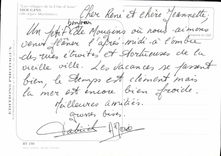 MOUGINS
Cher René et chère Jeannette,
Un petit bonjour
de Mougins où nous aimons
venir flâner l'après-midi à l'ombre
des rues étroites et tortueuses de la
vieille ville. Les vacances se passent
bien, le temps est clément mais
la mer est encore bien froide.
Meilleures amitiés.
Grosses bises.